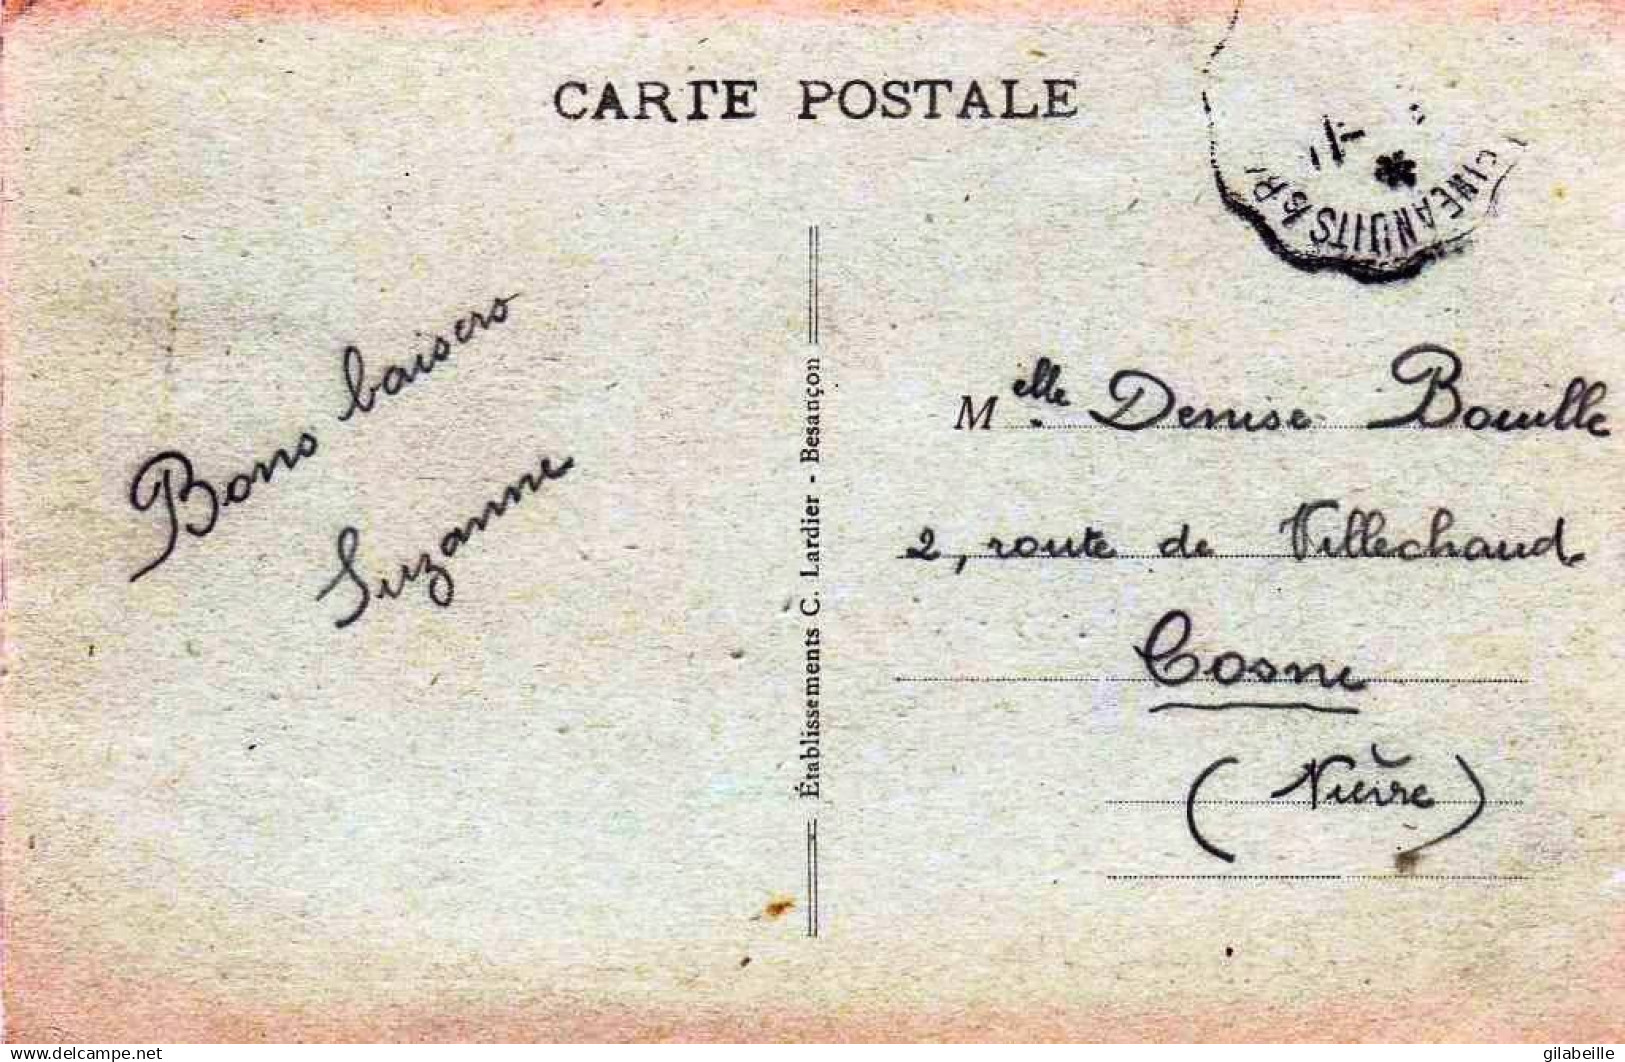 CARTE POSTALE
Bons baisers
Suzanne
Établissements C. Lardier - Besançon
Melle Denise Bouille
2, route de Villechaud
Cosne
(Nièvre)
delcampe.net
gilabeille